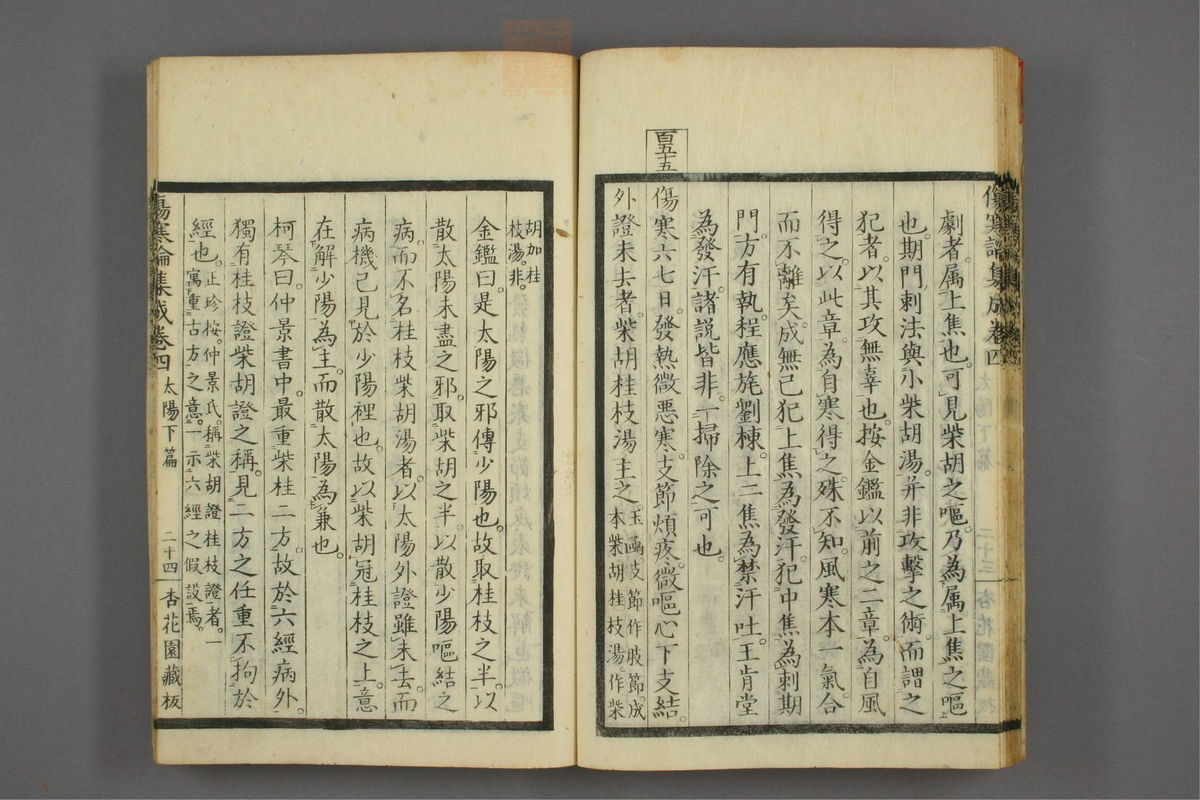 傷寒論集成卷四
劇者。属上焦也。可見柴胡之嘔。乃為属上焦之嘔
也。期門刺法與小柴胡湯。并非攻擊之術。而謂之
犯者。以其攻無辜也。按金鑑以前之二章。為自風
得之。以此章。為自寒得之。殊不知。風寒本一氣合
而不離矣。成無己犯上焦為發汗。犯中焦為刺期
門。方有執。程應旄。劉棟。上二焦為禁汗吐。王肯堂
為發汗。諸説皆非。一掃除之可也。
百五十五
傷寒六七日。發熱微惡寒。支節煩疼。微嘔。心下支結。
外證未去者。柴胡桂枝湯主之。玉函支節作肢節。成本柴胡桂枝湯。作柴
胡加桂枝湯。非。
金鑑曰。是太陽之邪傳少陽也。故取桂枝之半。以
散太陽未盡之邪。取柴胡之半。以散少陽嘔結之
病。而不名桂枝柴胡湯者。以太陽外證雖未去。而
病機已見於少陽裡也。故以柴胡冠桂枝之上。意
在解少陽為主。而散太陽為兼也。
柯琴曰。仲景書中。最重柴桂二方。故於六經病外。
獨有桂枝證柴胡證之稱。見二方之任重不拘於
經也。正珍按。仲景氏。稱柴胡證桂枝證者。一寓重古方之意。一示六經之假設焉。
傷寒論集成卷四 太陽下篇 二十四 杏花園藏板